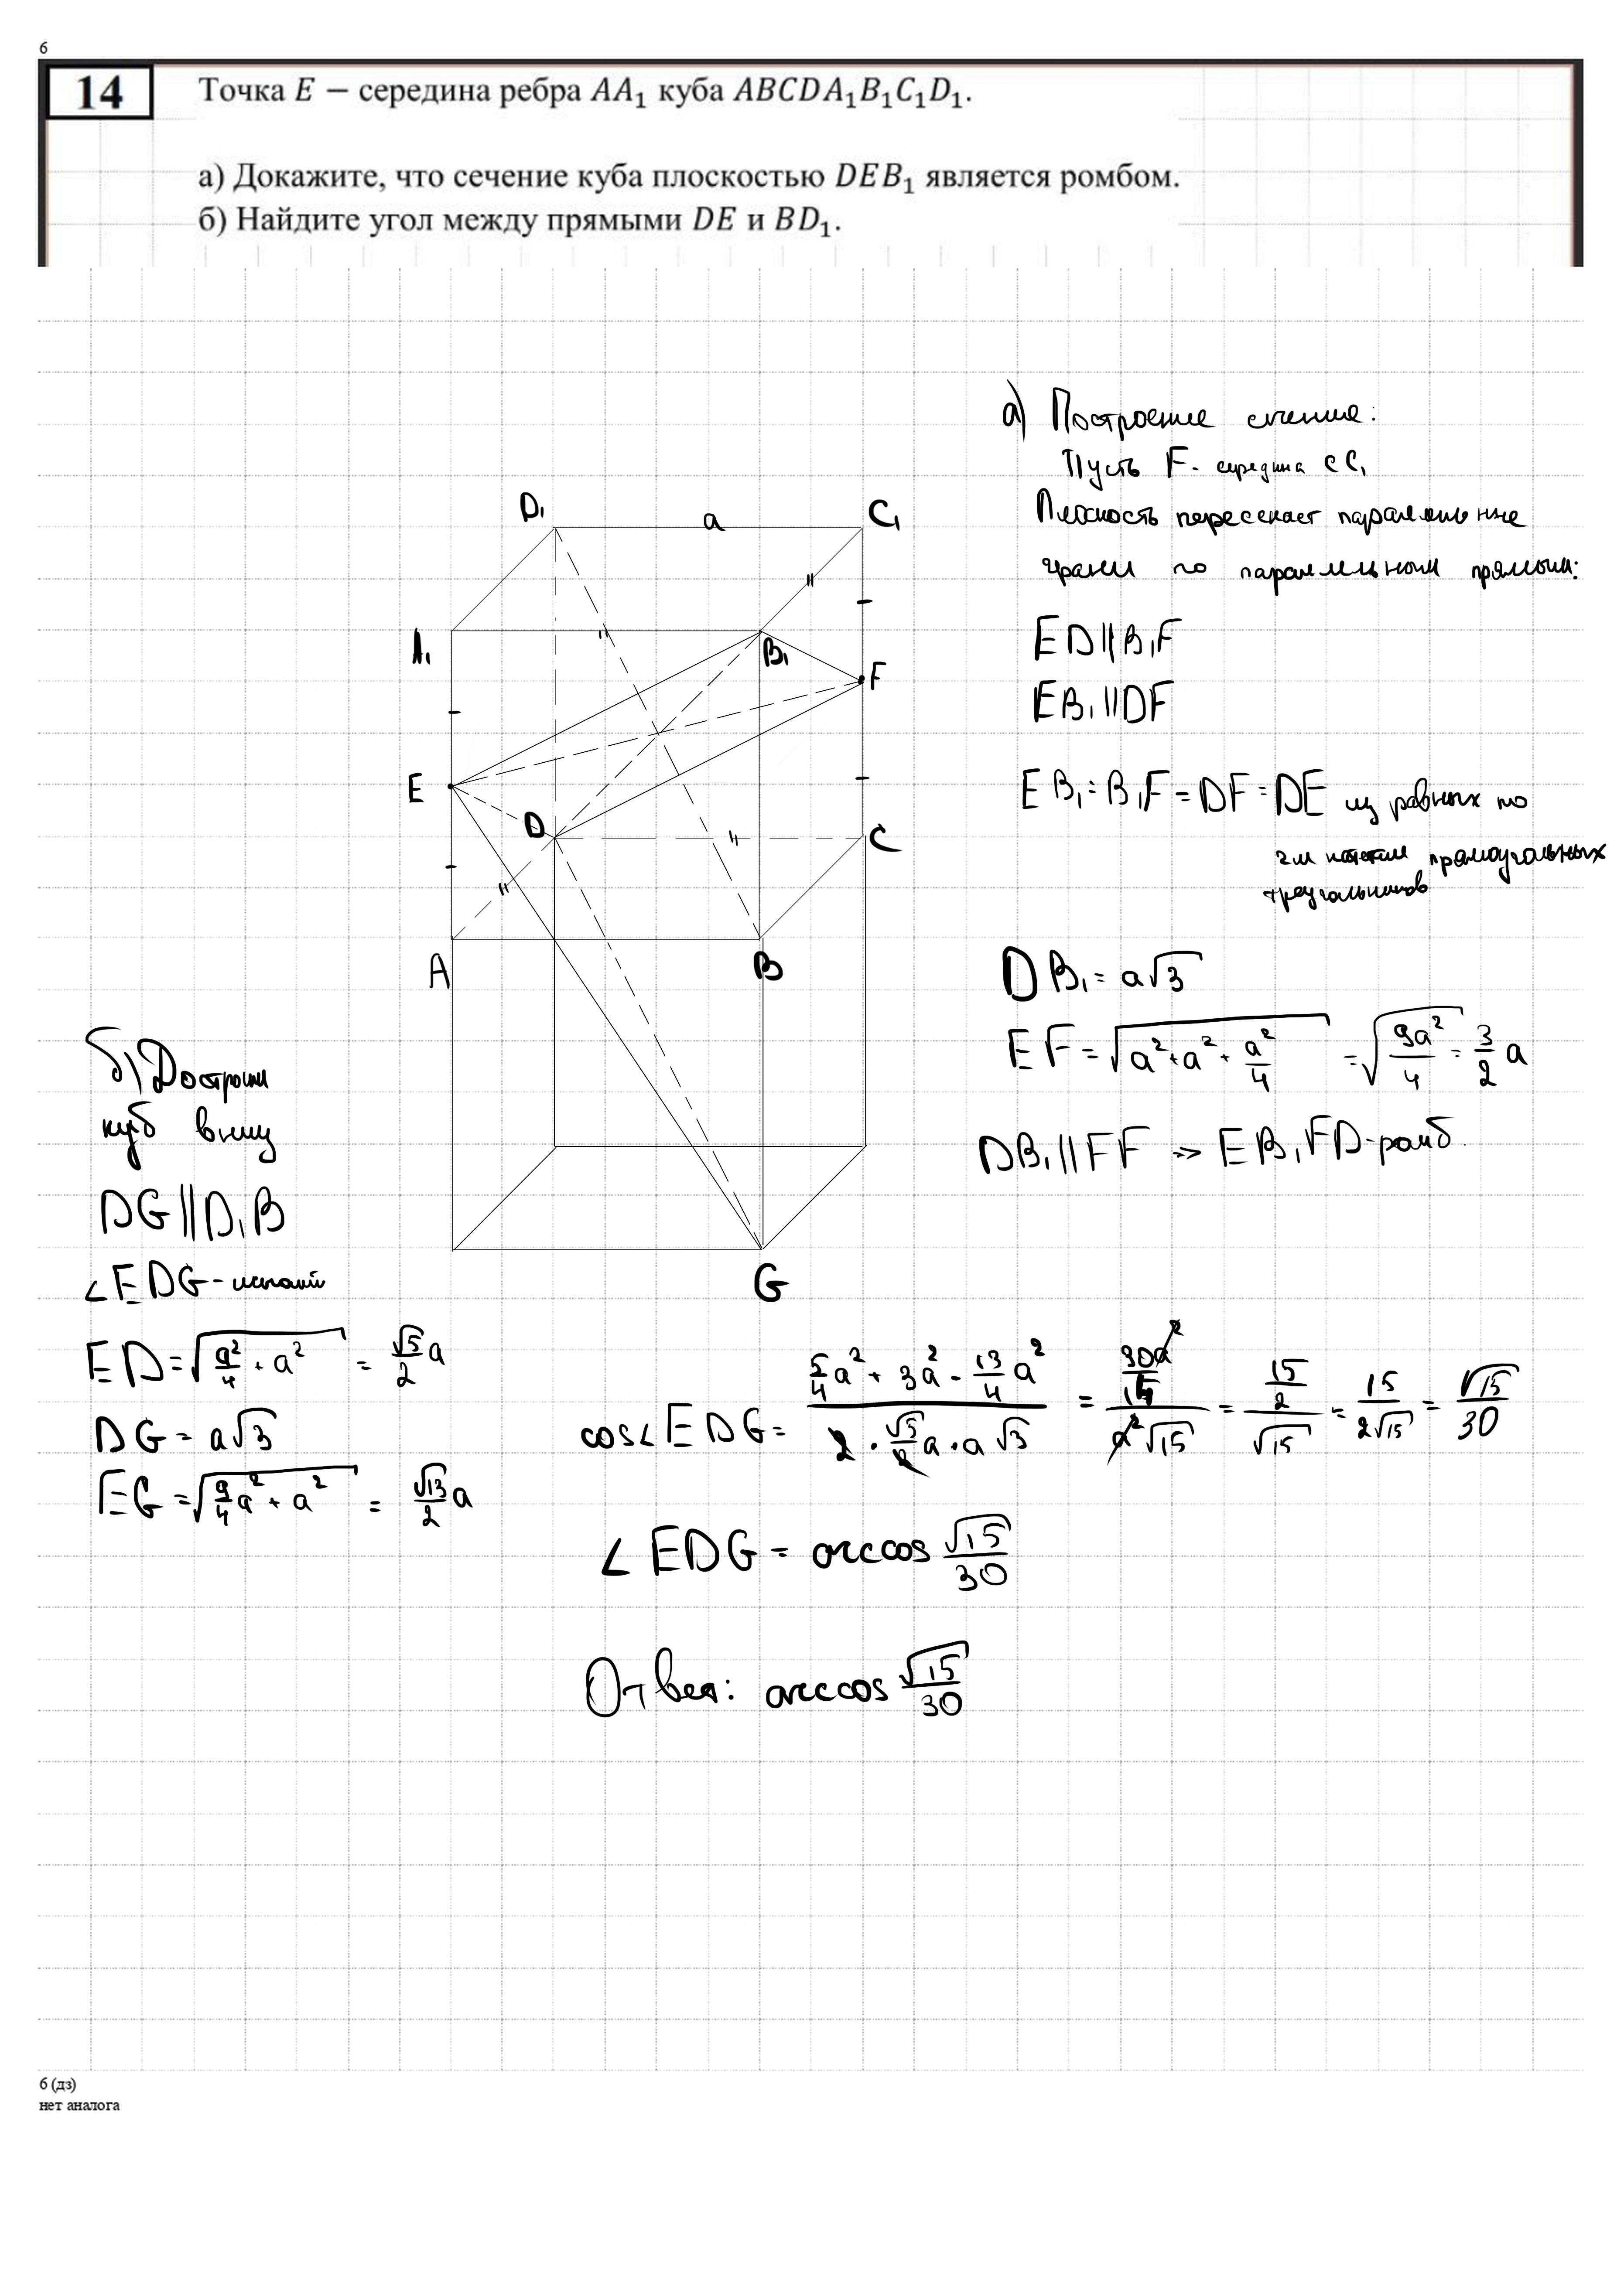 6
14
Точка E − середина ребра AA₁ куба ABCDA₁B₁C₁D₁.
а) Докажите, что сечение куба плоскостью DEB₁ является ромбом.
б) Найдите угол между прямыми DE и BD₁.
а) Построение сечение:
Пусть F - середина CC₁
Плоскость пересекает параллельные
грани по параллельным прямым:
ED∥B₁F
EB₁∥DF
EB₁ = B₁F = DF = DE из равных по
2м катетам прямоугольных
треугольников
DB₁ = a√3
EF = √(a² + a² + a²/4) = √(9a²/4) = 3/2 a
DB₁∥FF ⇒ EB₁FD - ромб.
D₁
a
C₁
A₁
B₁
F
E
D
C
A
B
G
б) Достроим
куб вниз
DG∥D₁B
∠EDG - искомый
ED = √(a²/4 + a²) = √5/2 a
DG = a√3
EG = √(9/4 a² + a²) = √13/2 a
cos∠EDG = (5/4 a² + 3a² - 13/4 a²)/(2 · √5/2 a · a√3) = = (15/2)/√15 = 15/(2√15) = √15/30
∠EDG = arccos √15/30
Ответ: arccos √15/30
6 (дз)
нет аналога